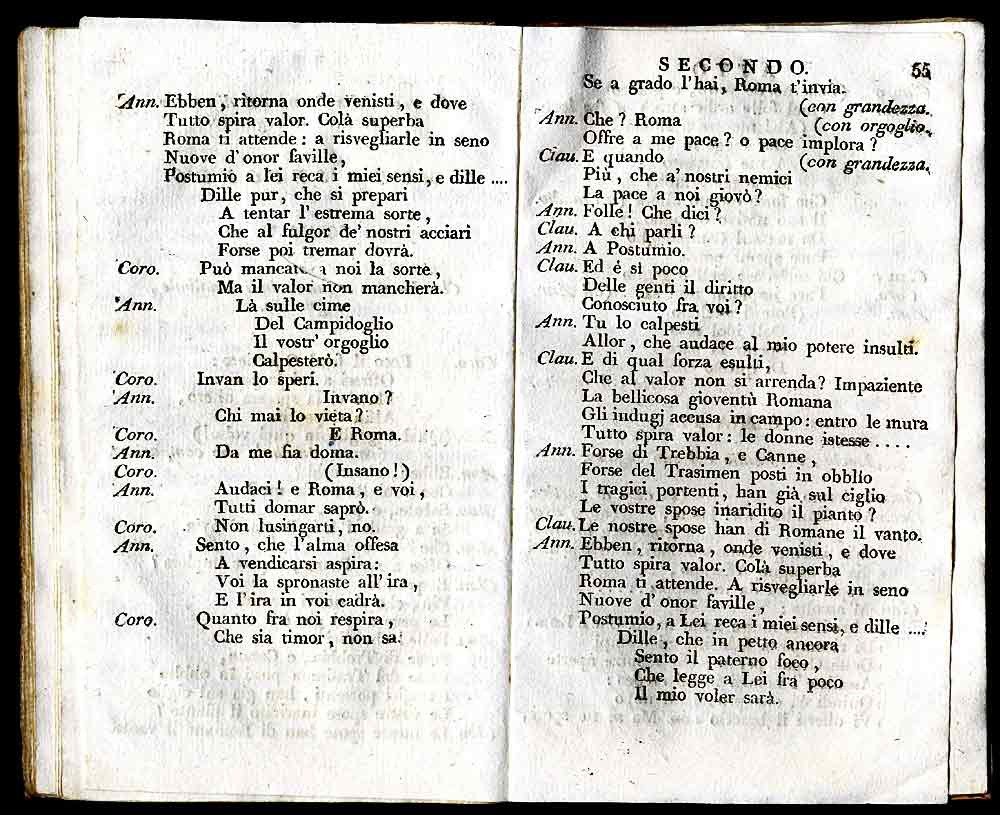 Ann. Ebben, ritorna onde venisti, e dove
Tutto spira valor. Colà superba
Roma ti attende: a risvegliarle in seno
Nuove d'onor faville,
Postumio a lei reca i miei sensi, e dille ....
Dille pur, che si prepari
A tentar l'estrema sorte,
Che al fulgor de' nostri acciari
Forse poi tremar dovrà.
Coro. Può mancare a noi la sorte,
Ma il valor non mancherà.
Ann. Là sulle cime
Del Campidoglio
Il vostr' orgoglio
Calpesterò.
Coro. Invan lo speri.
Ann. Invano?
Chi mai lo vieta?
Coro. E Roma.
Ann. Da me fia doma.
Coro. (Insano!)
Ann. Audaci! e Roma, e voi,
Tutti domar saprò.
Coro. Non lusingarti, no.
Ann. Sento, che l'alma offesa
A vendicarsi aspira:
Voi la spronaste all'ira,
E l'ira in voi cadrà.
Coro. Quanto fra noi respira,
Che sia timor, non sa.
SECONDO. 55
Se a grado l'hai, Roma t'invia.
(con grandezza.
Ann. Che? Roma (con orgoglio.
Offre a me pace? o pace implora?
Clau. E quando (con grandezza.
Più, che a' nostri nemici
La pace a noi giovò?
Ann. Folle! Che dici?
Clau. A chi parli?
Ann. A Postumio.
Clau. Ed è sì poco
Delle genti il diritto
Conosciuto fra voi?
Ann. Tu lo calpesti
Allor, che audace al mio potere insulti.
Clau. E di qual forza esulti,
Che al valor non si arrenda? Impaziente
La bellicosa gioventù Romana
Gli indugj accusa in campo: entro le mura
Tutto spira valor: le donne istesse ....
Ann. Forse di Trebbia, e Canne,
Forse del Trasimen posti in obblio
I tragici portenti, han già sul ciglio
Le vostre spose inaridito il pianto?
Clau. Le nostre spose han di Romane il vanto.
Ann. Ebben, ritorna, onde venisti, e dove
Tutto spira valor. Colà superba
Roma ti attende. A risvegliarle in seno
Nuove d'onor faville,
Postumio, a Lei reca i miei sensi, e dille ....
Dille, che in petto ancora
Sento il paterno foco,
Che legge a Lei fra poco
Il mio voler sarà.